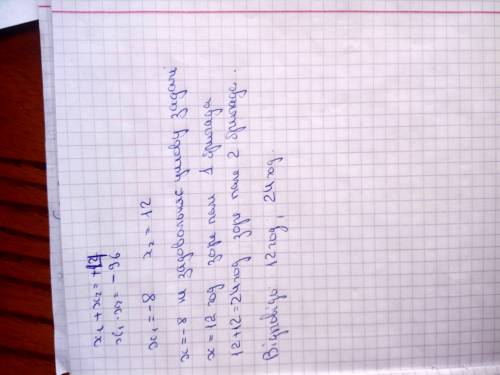 x₁ + x₂ = +
x₁ · x₂ = -96
x₁ = -8 x₂ = 12
x = -8 не задовольняє умову задачі
x = 12 год зоре поле 1 бригада
12+12=24 год зоре поле 2 бригада.
Відповідь 12 год, 24 год.